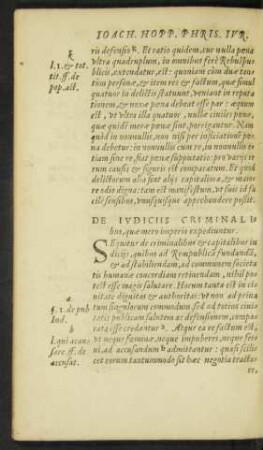 IOACH. HOPP. PHRIS. IVR.
ris defensio k. Et ratio quidem, cur nulla pœna
vltra quadruplum, in omnibus ferè Rebuspu-
blicis, extendatur, est: quoniam cum duæ
personæ, & item res & factum, quæ simul
quatuor in delictis statuunt, veniant in reputa-
tionem, & noxæ pœna debeat esse par: æquum
est, vt vltra illa quatuor, nullæ
quæ quidem meræ pœnæ sint, porrigantur. Nam
quid in nonnullis, non nisi per
na debetur: in nonnullis cum re, in nonnullis
citra rem fit, fiat pœnæ supputatio: pro varijs re-
rum causis & figuris est comparatum. Et quod
delictorum alia sint alijs capitalior, & maio-
re odio digna: tam est manifestum, vt suis id fa-
cilè sensibus, vnusquisque apprehendere possit.
k
l. 1. & tot.
tit. ff. de
pop. act.
DE IVDICIIS CRIMINALI-
bus, quæ mero imperio expediuntur.
SEquitur de criminalibus & capitalibus iu-
dicijs, quibus ad Rempublicam fundandã,
& ad stabiliendam, ad communem societa-
tis humanæ concordiam retinendam, nihil po-
test esse magis salutare. Harum tanta est in ci-
uitate dignitas & authoritas: vt non ad priua-
tum singulorum commodum, sed ad totius ciui-
tatis publicam salutem ac defensionem, compa-
rata esse credantur a. Atque ea re factum est,
vt neque fœminæ, neque impuberes, neque serui
ni, ad accusandum b admittantur: quasi scilicet
eorum tantummodo sit hæc negotia tracta-
re,
a
§. 1. de pub.
Iud.
b
l. qui accu-
sare. ff. de
accusat.